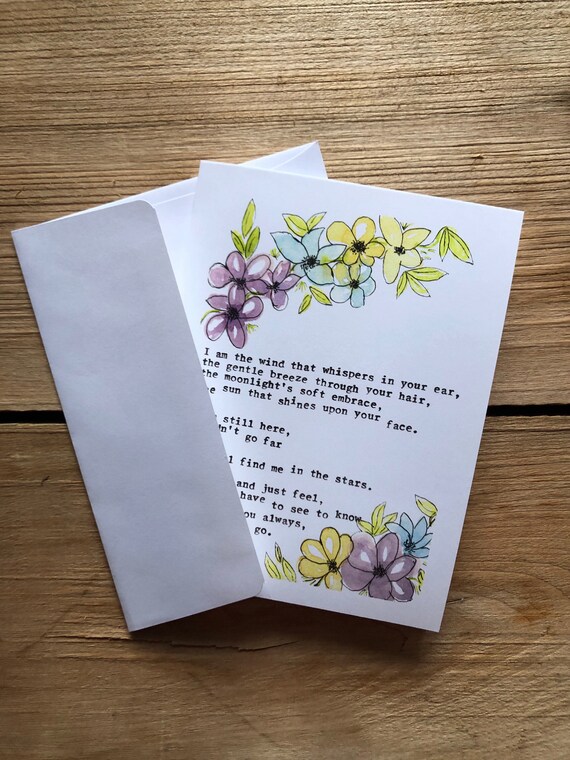 I am the wind that whispers in your ear,
the gentle breeze through your hair,
the moonlight's soft embrace,
sun that shines upon your face.
still here,
go far
find me in the stars.
and just feel,
have to see to know
always,
go.